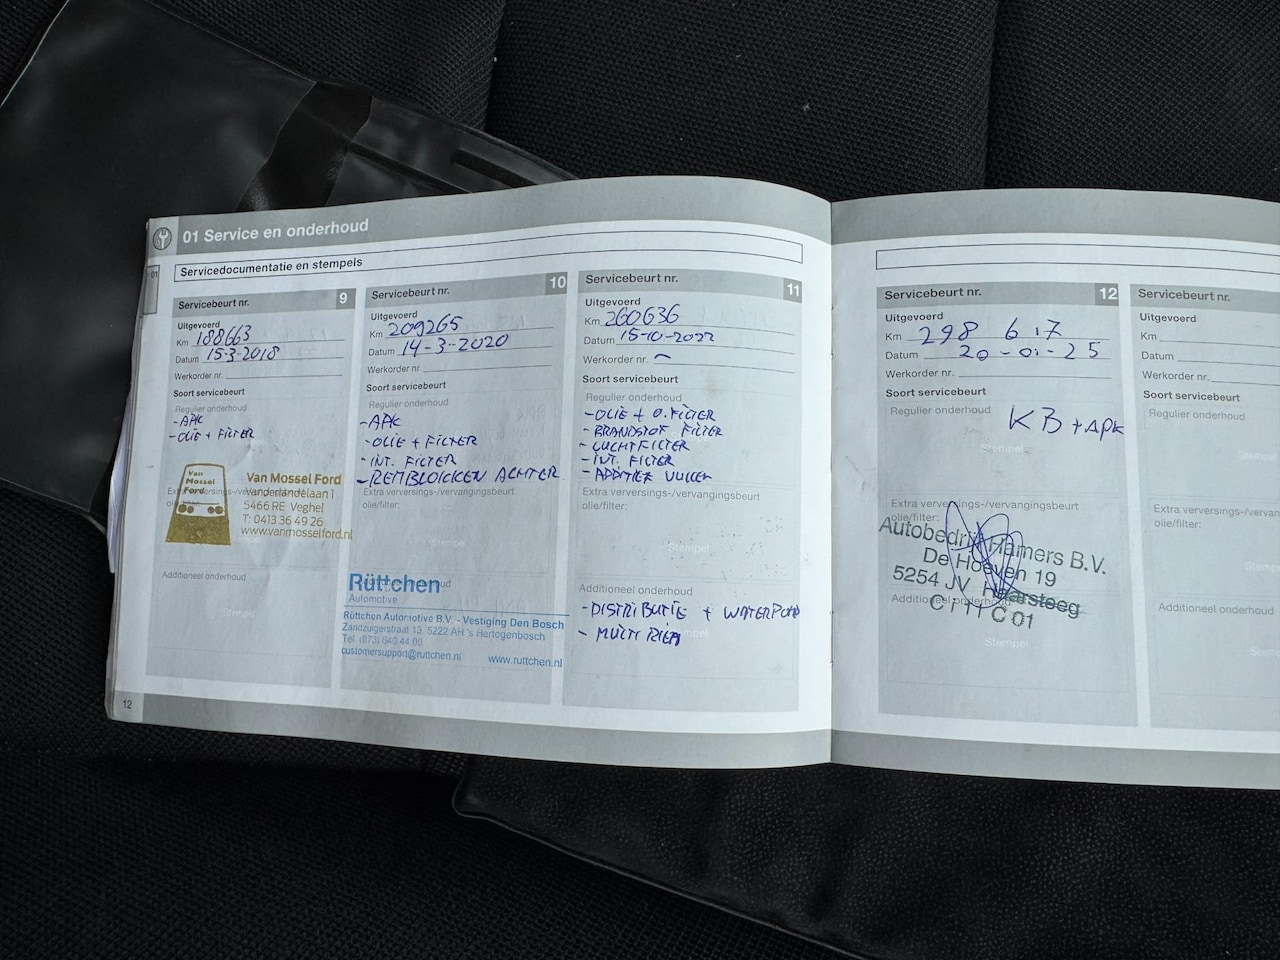 01 Service en onderhoud
01
Servicedocumentatie en stempels
Servicebeurt nr. 9
Uitgevoerd
Km 188663
Datum 15-3-2018
Werkorder nr.
Soort servicebeurt
Regulier onderhoud
- APK
- OLIE + FILTER
Van Mossel Ford
Van Mossel Ford
Vanderlandelaan 1
5466 RE Veghel
T: 0413 36 49 26
www.vanmosselford.nl
Additioneel onderhoud
Stempel
Servicebeurt nr. 10
Uitgevoerd
Km 209265
Datum 14-3-2020
Werkorder nr.
Soort servicebeurt
Regulier onderhoud
- APK
- OLIE + FILTER
- INT. FILTER
- REMBLOKKEN ACHTER
Extra verversings-/vervangingsbeurt
olie/filter:
Stempel
Rüttchen
Automotive
Rüttchen Automotive B.V. - Vestiging Den Bosch
Zandzuigerstraat 13, 5222 AH 's Hertogenbosch
Tel. (073) 640 44 00
customersupport@ruttchen.nl www.ruttchen.nl
Servicebeurt nr. 11
Uitgevoerd
Km 260636
Datum 15-10-2022
Werkorder nr. ~
Soort servicebeurt
Regulier onderhoud
- OLIE + O.FILTER
- BRANDSTOF FILTER
- LUCHTFILTER
- INT. FILTER
- ADDITIEF VULLEN
Extra verversings-/vervangingsbeurt
olie/filter:
Stempel
Additioneel onderhoud
- DISTRIBUTIE + WATERPOMP
- MULTI RIEM
Stempel
12
Servicebeurt nr. 12
Uitgevoerd
Km 298 617
Datum 20-01-25
Werkorder nr.
Soort servicebeurt
Regulier onderhoud
KB + APK
Stempel
Extra verversings-/vervangingsbeurt
olie/filter:
Autobedrijf Hamers B.V.
De Hoeven 19
5254 JV Haarsteeg
Additioneel onderhoud
C 01
Stempel
Servicebeurt nr.
Uitgevoerd
Km
Datum
Werkorder nr.
Soort servicebeurt
Regulier onderhoud
Extra verversings-/vervan
olie/filter:
Additioneel onderhoud